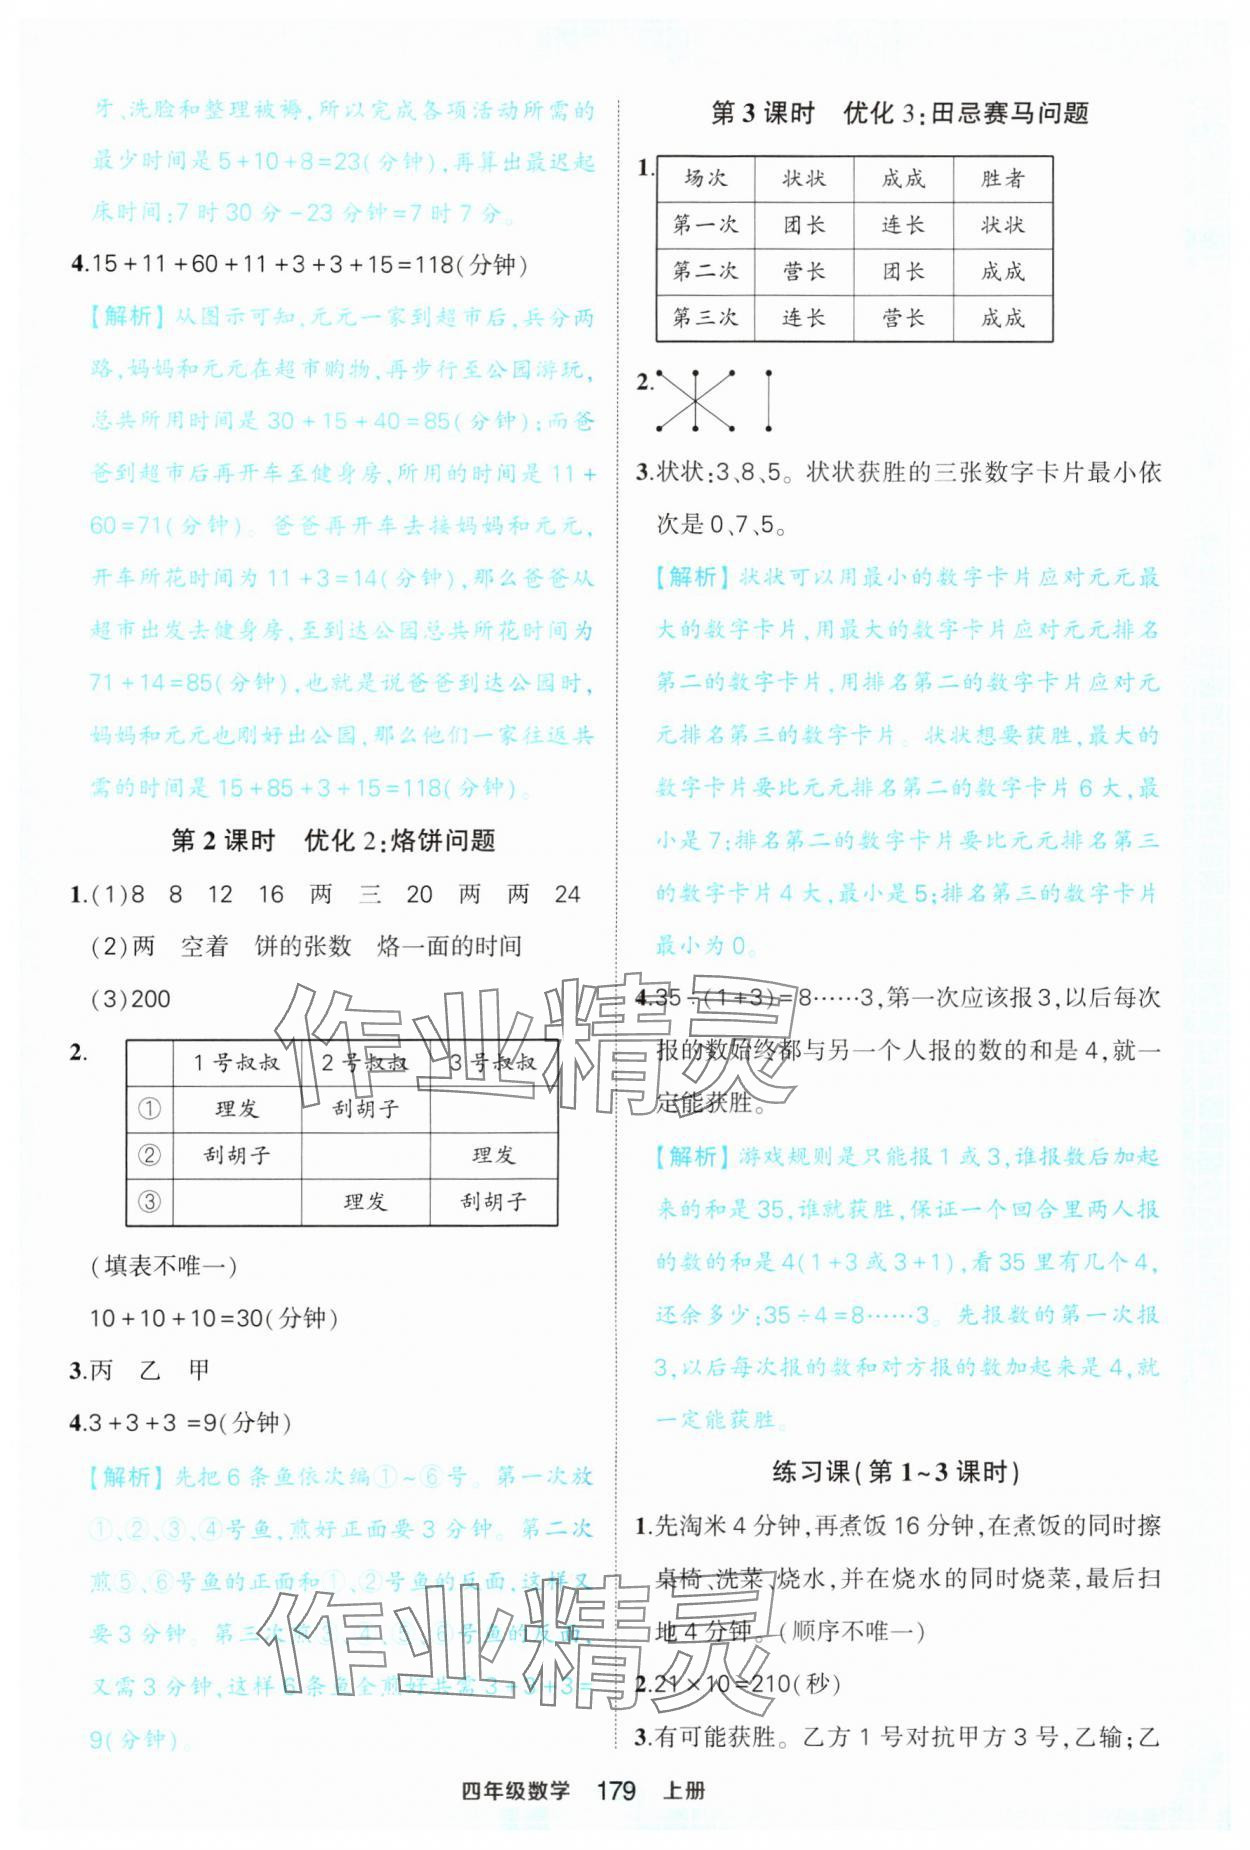 牙、洗脸和整理被褥,所以完成各项活动所需的
最少时间是5+10+8=23(分钟),再算出最迟起
床时间:7时30分-23分钟=7时7分。
4.15+11+60+11+3+3+15=118(分钟)
【解析】从图示可知,元元一家到超市后,兵分两
路,妈妈和元元在超市购物,再步行至公园游玩,
总共所用时间是30+15+40=85(分钟);而爸
爸到超市后再开车至健身房,所用的时间是11+
60=71(分钟)。爸爸再开车去接妈妈和元元,
开车所花时间为11+3=14(分钟),那么爸爸从
超市出发去健身房,至到达公园总共所花时间为
71+14=85(分钟),也就是说爸爸到达公园时,
妈妈和元元也刚好出公园,那么他们一家往返共
需的时间是15+85+3+15=118(分钟)。
第2课时 优化2:烙饼问题
1.(1)8 8 12 16 两 三 20 两 两 24
(2)两 空着 饼的张数 烙一面的时间
(3)200
2.
1号叔叔 2号叔叔 3号叔叔
① 理发 刮胡子
② 刮胡子 理发
③ 理发 刮胡子
(填表不唯一)
10+10+10=30(分钟)
3.丙 乙 甲
4.3+3+3=9(分钟)
【解析】先把6条鱼依次编①~⑥号。第一次放
①、②、③、④号鱼,煎好正面要3分钟。第二次
煎⑤、⑥号鱼的正面和①、②号鱼的反面,这样又
要3分钟。第三次煎3、4、⑤、⑥号鱼的反面,
又需3分钟,这样6条鱼全煎好共需3+3+3=
9(分钟)。
第3课时 优化3:田忌赛马问题
1.
场次 状状 成成 胜者
第一次 团长 连长 状状
第二次 营长 团长 成成
第三次 连长 营长 成成
2.
3.状状:3、8、5。状状获胜的三张数字卡片最小依
次是0、7、5。
【解析】状状可以用最小的数字卡片应对元元最
大的数字卡片,用最大的数字卡片应对元元排名
第二的数字卡片,用排名第二的数字卡片应对元
元排名第三的数字卡片。状状想要获胜,最大的
数字卡片要比元元排名第二的数字卡片6大,最
小是7;排名第二的数字卡片要比元元排名第三
的数字卡片4大,最小是5;排名第三的数字卡片
最小为0。
4.35÷(1+3)=8……3,第一次应该报3,以后每次
报的数始终都与另一个人报的数的和是4,就一
定能获胜。
【解析】游戏规则是只能报1或3,谁报数后加起
来的和是35,谁就获胜,保证一个回合里两人报
的数的和是4(1+3或3+1),看35里有几个4,
还余多少:35÷4=8……3。先报数的第一次报
3,以后每次报的数和对方报的数加起来是4,就
一定能获胜。
练习课(第1~3课时)
1.先淘米4分钟,再煮饭16分钟,在煮饭的同时擦
桌椅、洗菜、烧水,并在烧水的同时烧菜,最后扫
地4分钟。(顺序不唯一)
2.21×10=210(秒)
3.有可能获胜。乙方1号对抗甲方3号,乙输;乙
四年级数学 179 上册
作业精灵
作业精灵